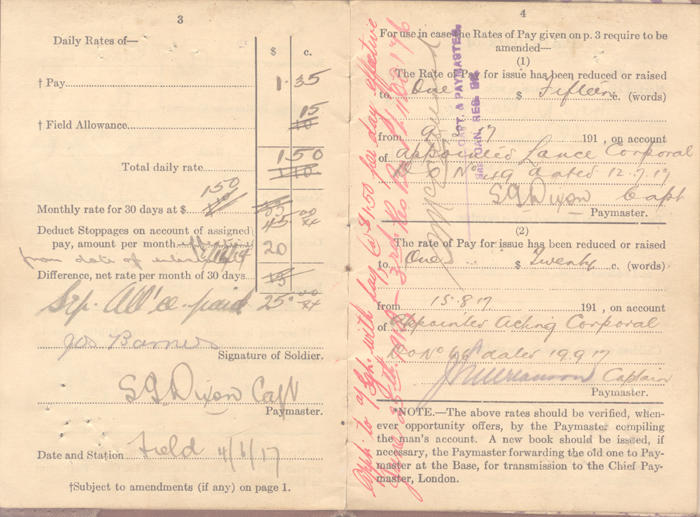 3
Daily Rates of—
$ c.
† Pay 1.35
15
† Field Allowance 10
1 50
Total daily rate 1 10
1 50
Monthly rate for 30 days at $
45.00
Deduct Stoppages on account of assigned
pay, amount per month 20
from date of
Difference, net rate per month of 30 days 15
Sep. All'ce paid 25.00
Jos Barnes
Signature of Soldier.
S G Dixon Capt
Paymaster.
Date and Station Field 4/6/17
†Subject to amendments (if any) on page 1.
4
For use in case the Rates of Pay given on p. 3 require to be
amended—
(1)
The Rate of Pay for issue has been reduced or raised
to One $ Fifteen c. (words)
from 9 7 17 191 , on account
of Appointed Lance Corporal
D.O. No dated 12.7.17
S G Dixon Capt
Paymaster.
(2)
The rate of Pay for issue has been reduced or raised
to One $ Twenty c. (words)
from 15.8.17 191 , on account
of Appointed Acting Corporal
D O No dated 19 9 17
Captain
Paymaster.
*NOTE.—The above rates should be verified, when-
ever opportunity offers, by the Paymaster compiling
the man's account. A new book should be issued, if
necessary, the Paymaster forwarding the old one to Pay-
master at the Base, for transmission to the Chief Pay-
master, London.
with pay @ $1.50 per day effective
CAPT. & PAYMASTER,